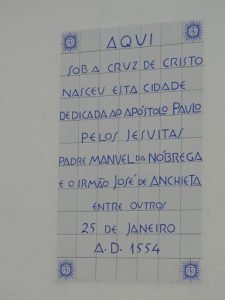 AQUI
SOB A CRUZ DE CRISTO
NASCEU ESTA CIDADE
DEDICADA AO APÓSTOLO PAULO
PELOS JESUITAS
PADRE MANVEL DA NÓBREGA
E O IRMÃO JOSÉ DE ANCHIETA
ENTRE OUTROS
25 DE JANEIRO
A.D. 1554